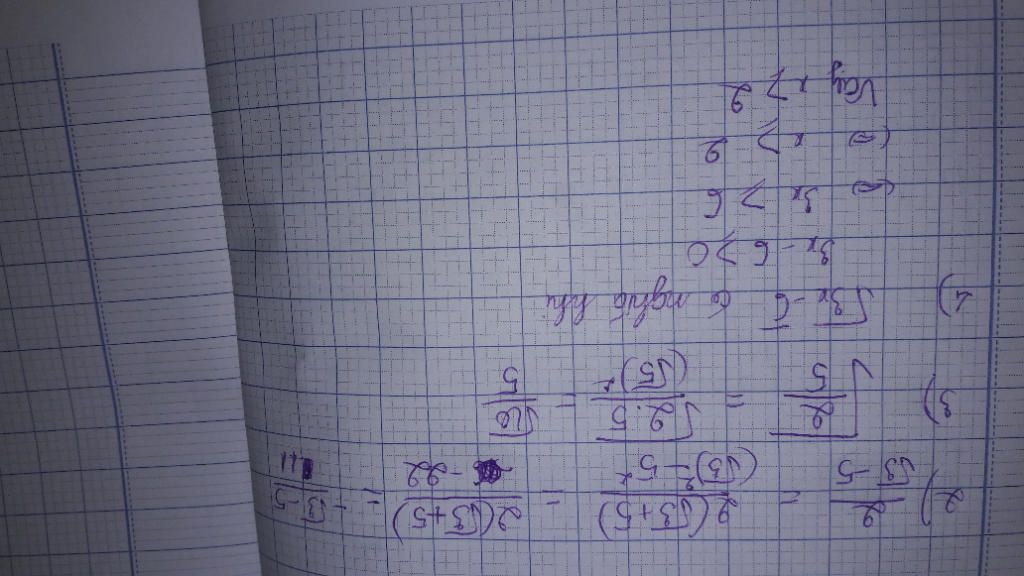 2) 2/(√3 - 5) = 2(√3+5)/((√3)² - 5²) = 2(√3+5)/-22 = -(√3-5)/11
3) √(2/5) = √(2.5)/(√5)² = √10/5
1) √(3x-6) có nghĩa khi
3x - 6 ≥ 0
(=) 3x ≥ 6
(=) x ≥ 2
Vậy x ≥ 2